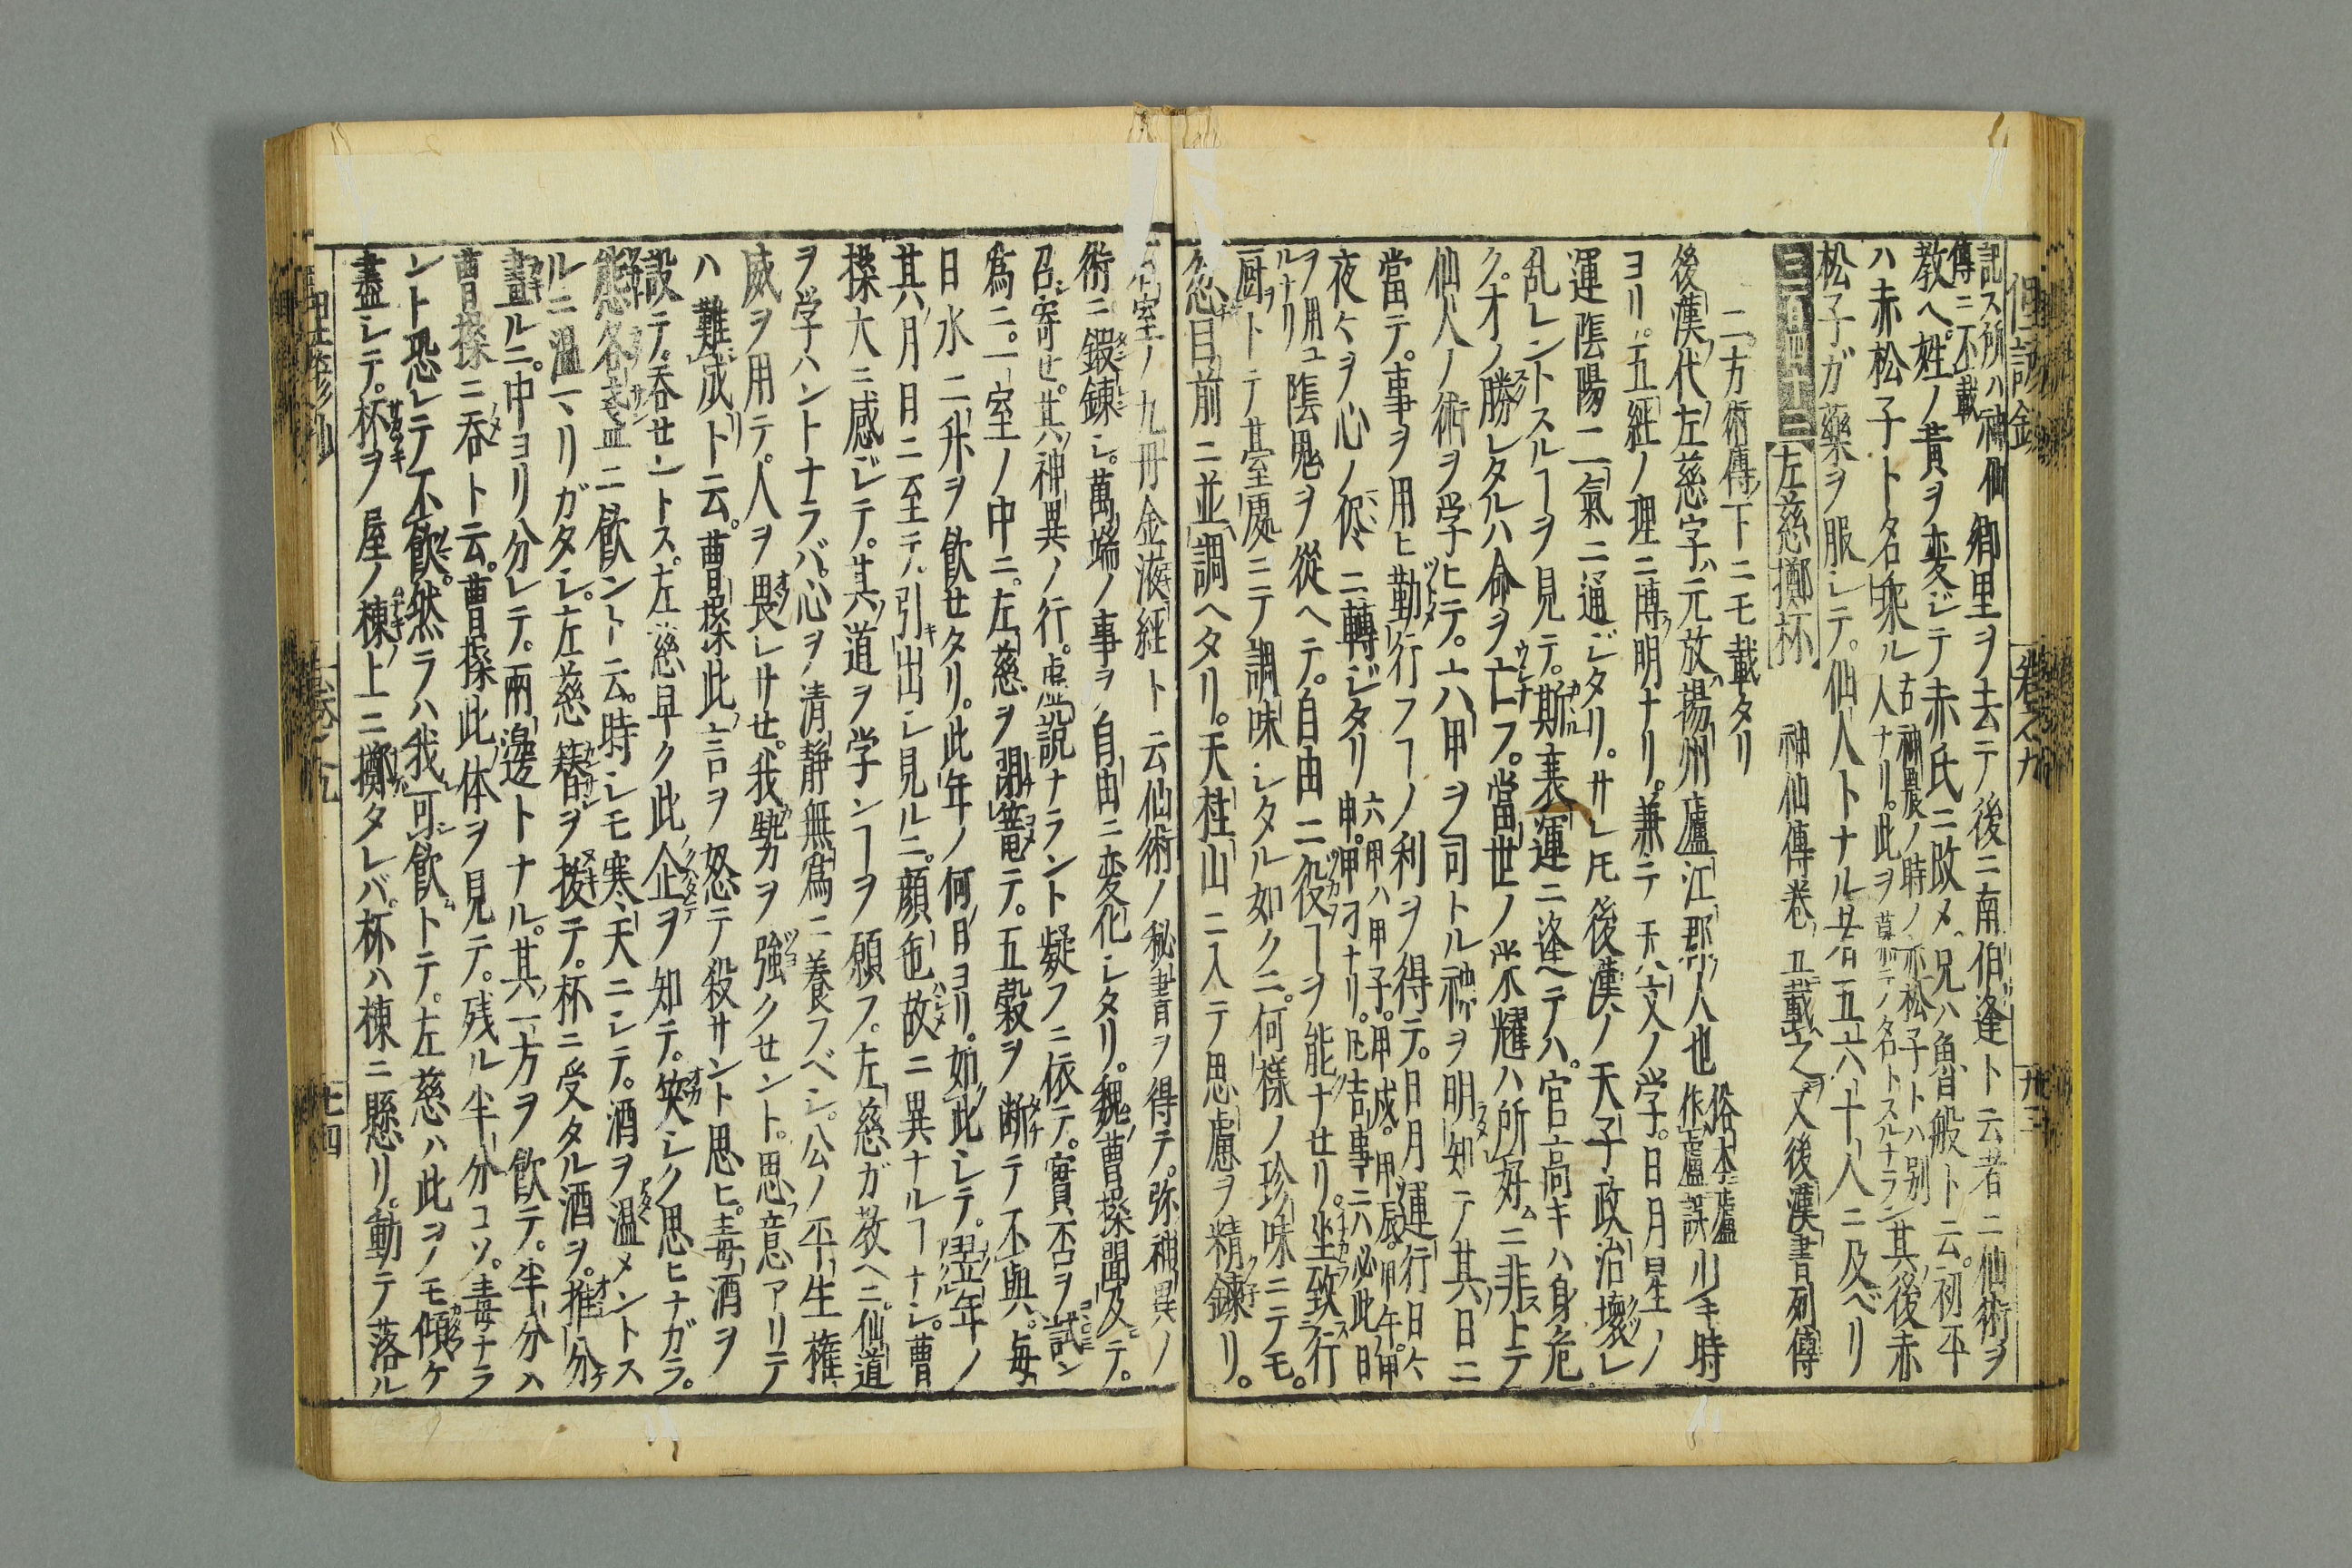 俚諺鈔 卷之九 卅三
記ス所ハ神仙傳ニ不載 鄉里ヲ去テ後ニ南伯逢ト云者ニ仙術ヲ
教ヘ。姓ノ黃ヲ変ジテ赤氏ニ改メ。兄ハ魯般ト云。初平
ハ赤松子ト名乘ル 古神農ノ時ノ赤松子トハ別人ナリ。此ヲ慕テノ名トスルナラン 其後赤
松子ガ藥ヲ服シテ。仙人トナル者五六十人ニ及ベリ
三百四十二 左慈擲杯 神仙傳卷五載之 又後漢書列傳
二方術傳下ニモ載タリ
後漢代左慈字ハ元放揚州廬江郡ノ人也 俗本廬作盧誤 少キ時
ヨリ。五經ノ理ニ博ク明ナリ。兼テ天文ノ学。日月星ノ
運陰陽二氣ニ通ジタリ。サレ𪜈後漢ノ天子政治壞レ
乱レントスルヿヲ見テ。斯衰運ニ逢テハ。官高キハ身危
ク。才ノ勝レタルハ命ヲ亡フ。當世ノ榮耀ハ所好ニ非トテ
仙人ノ術ヲ学ヒテ。六甲ヲ司トル神ヲ明知テ其日ニ
當テ。事ヲ用ヒ勤行フヿノ利ヲ得テ。日月運行日々
夜々ヲ心ノ侭ニ轉ジタリ 六甲ハ甲子。甲戌。甲辰。甲午。甲申。甲寅ナリ。凡吉事ニハ必此日
ヲ用ユルナリ 陰鬼ヲ從ヘテ。自由ニ役ヿヲ能ナセリ。坐致行
厨トテ其室處ニテ調味シタル如クニ。何樣ノ珍味ニテモ。
忽目前ニ並調ヘタリ。天柱山ニ入テ思慮ヲ精錬リ。
石室ノ九丹金液經ト云仙術ノ秘書ヲ得テ。弥神異ノ
術ニ鍛錬シ。萬端ノ事ヲ自由ニ変化シタリ。魏曹操聞及テ。
召寄セ。其神異ノ行。虛說ナラント疑フニ依テ。實否ヲ試ン
爲ニ。一室ノ中ニ。左慈ヲ閉篭テ。五穀ヲ断テ不與。每
日水二升ヲ飲セタリ。此年ノ何日ヨリ。如此シテ。翌年ノ
其六月日ニ至テ。引出シ見ルニ。顏色故ニ異ナルヿナシ。曹
操大ニ感ジテ。其道ヲ学ンヿヲ願フ。左慈ガ教ヘニ。仙道
ヲ学ハントナラバ。心ヲ清靜無爲ニ養フベシ。公ノ平生權
威ヲ用テ。人ヲ畏レサセ。我勢ヲ強クセント。思意アリテ
ハ難成ト云。曹操此言ヲ怒テ殺サント思ヒ。毒酒ヲ
設テ。吞セントス。左慈早ク此企ヲ知テ。笑シク思ヒナガラ。
盃ニ飲ント云。時シモ寒天ニシテ。酒ヲ温メントス
ルニ温マリガタシ。左慈簪ヲ拔テ。杯ニ受タル酒ヲ。推分
畫ルニ。中ヨリ分レテ。兩邊トナル。其一方ヲ飲テ。半分ハ
曹操ニ吞ト云。曹操此体ヲ見テ。残ル半分コソ。毒ナラ
ント恐レテ不飲。然ラハ我可飲トテ。左慈ハ此ヲノモ傾ケ
盡シテ。杯ヲ屋ノ棟上ニ擲タレバ。杯ハ棟ニ懸リ。動テ落ル
卷之九 七四